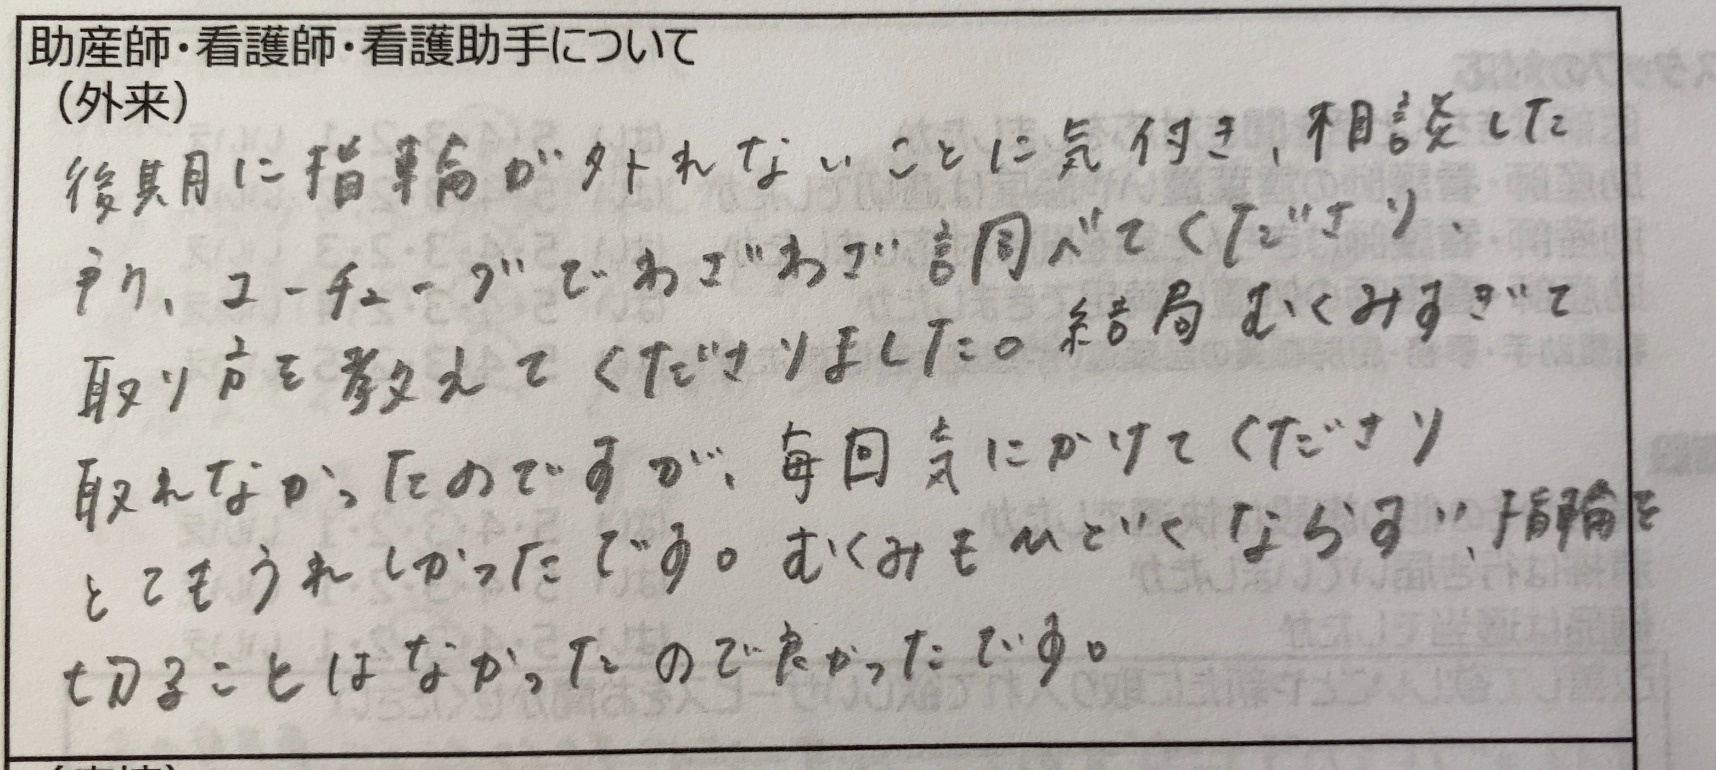 助産師・看護師・看護助手について
（外来）
後期に指輪が外れないことに気付き、相談した
所、ユーチューブでわざわざ調べてくださり、
取り方を教えてくださりました。結局むくみすぎて
取れなかったのですが、毎回気にかけてくださり
とてもうれしかったです。むくみもひどくならず、指輪を
切ることはなかったので良かったです。